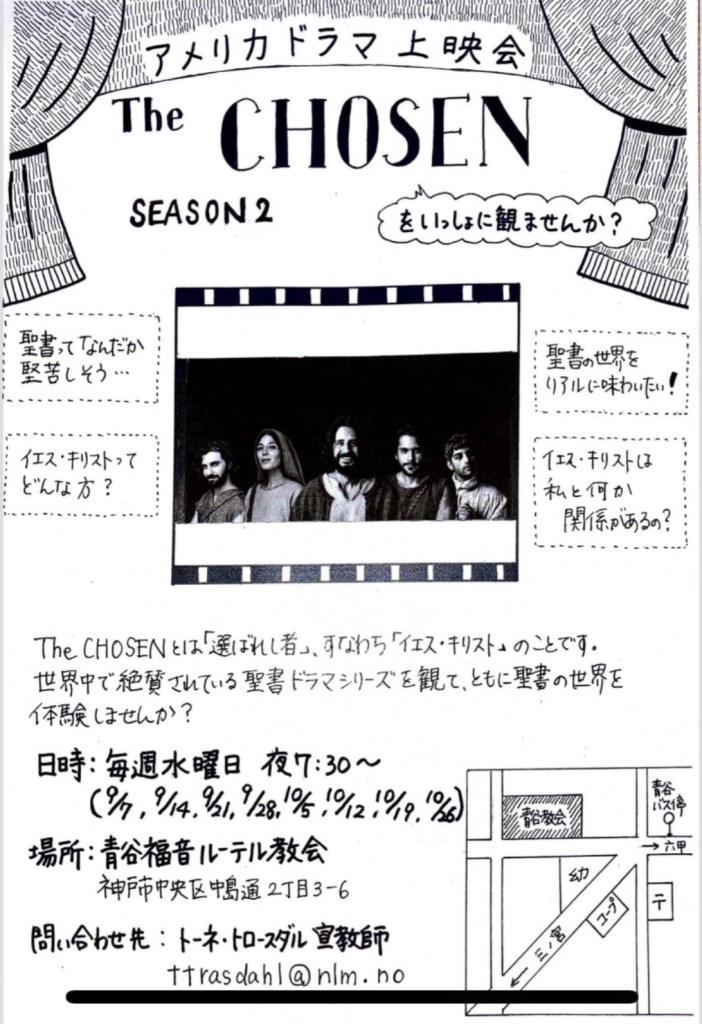 アメリカドラマ上映会
The CHOSEN
SEASON2
をいっしょに観ませんか?
聖書ってなんだか
堅苦しそう…
聖書の世界を
リアルに味わいたい!
イエス・キリストって
どんな方?
イエス・キリストは
私と何か
関係があるの?
The CHOSENとは「選ばれし者」、すなわち「イエス・キリスト」のことです。
世界中で絶賛されている聖書ドラマシリーズを観て、ともに聖書の世界を
体験しませんか?
日時:毎週水曜日 夜7:30〜
(9/7, 9/14, 9/21, 9/28, 10/5, 10/12, 10/19, 10/26)
場所:青谷福音ルーテル教会
神戸市中央区中島通2丁目3-6
問い合わせ先:トーネ・トロースダル宣教師
ttrasdahl@nlm.no
青谷教会
青谷
バス停
→六甲
幼
コープ
〒
←三ノ宮